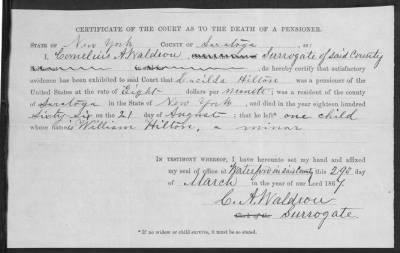 CERTIFICATE OF THE COURT AS TO THE DEATH OF A PENSIONER.
STATE OF New York COUNTY OF Saratoga, ss:
I, Cornelius A. Waldron Surrogate of said County
do hereby certify that satisfactory
evidence has been exhibited to said Court that Hilton, was a pensioner of the
United States at the rate of Eight dollars per month; was a resident of the county
of Saratoga in the State of New York, and died in the year eighteen hundred
Sixty Six on the 21 day of August; that he left* one child
whose name is William Hilton, a minor
IN TESTIMONY WHEREOF, I have hereunto set my hand and affixed
my seal of office at Waterford in said County this day
of March in the year of our Lord 1867
C. A. Waldron
Surrogate
*If no widow or child survive, it must be so stated.